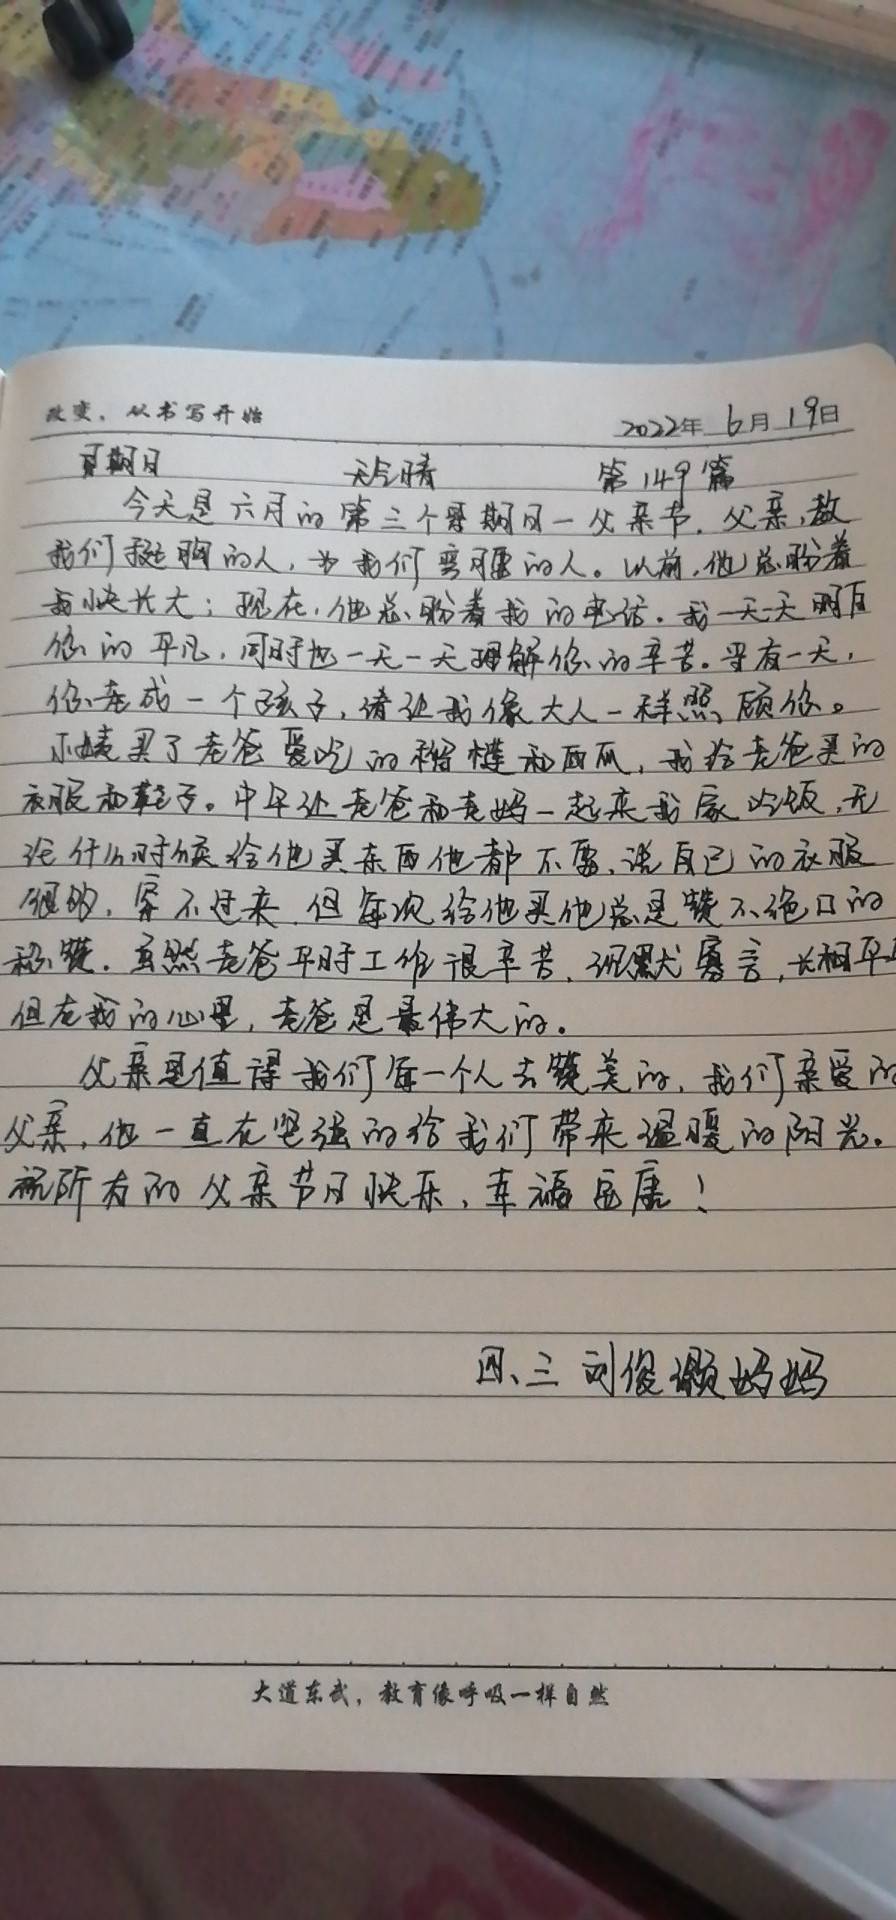 改变，从书写开始
2022年 6月 19日
星期日 天气晴 第149篇
今天是六月的第三个星期日一父亲节. 父亲,教
我们挺胸的人, 为我们弯腰的人。以前,他总盼着
我快长大; 现在,他总盼着我的电话. 我一天天明白
您的平凡, 同时也一天一天理解您的辛苦。当有一天,
您老成一个孩子, 请让我像大人一样照顾您。
小妹买了老爸爱吃的和西瓜, 我给老爸买的
衣服和鞋子。中午让老爸和老妈一起来我家吃饭,无
论什么时候给他买东西他都不要,说自己的衣服
很多, 穿不过来,但每次给他买他总是赞不绝口的
称赞. 虽然老爸平时工作很辛苦, 沉默寡言, 长相平
但在我的心里, 老爸是最伟大的。
父亲是值得我们每一个人去赞美的, 我们亲爱的
父亲, 他一直在坚强的给我们带来温暖的阳光。
祝所有的父亲节日快乐, 幸福安康!
四、三 刘俊灏妈妈
大道东武，教育像呼吸一样自然